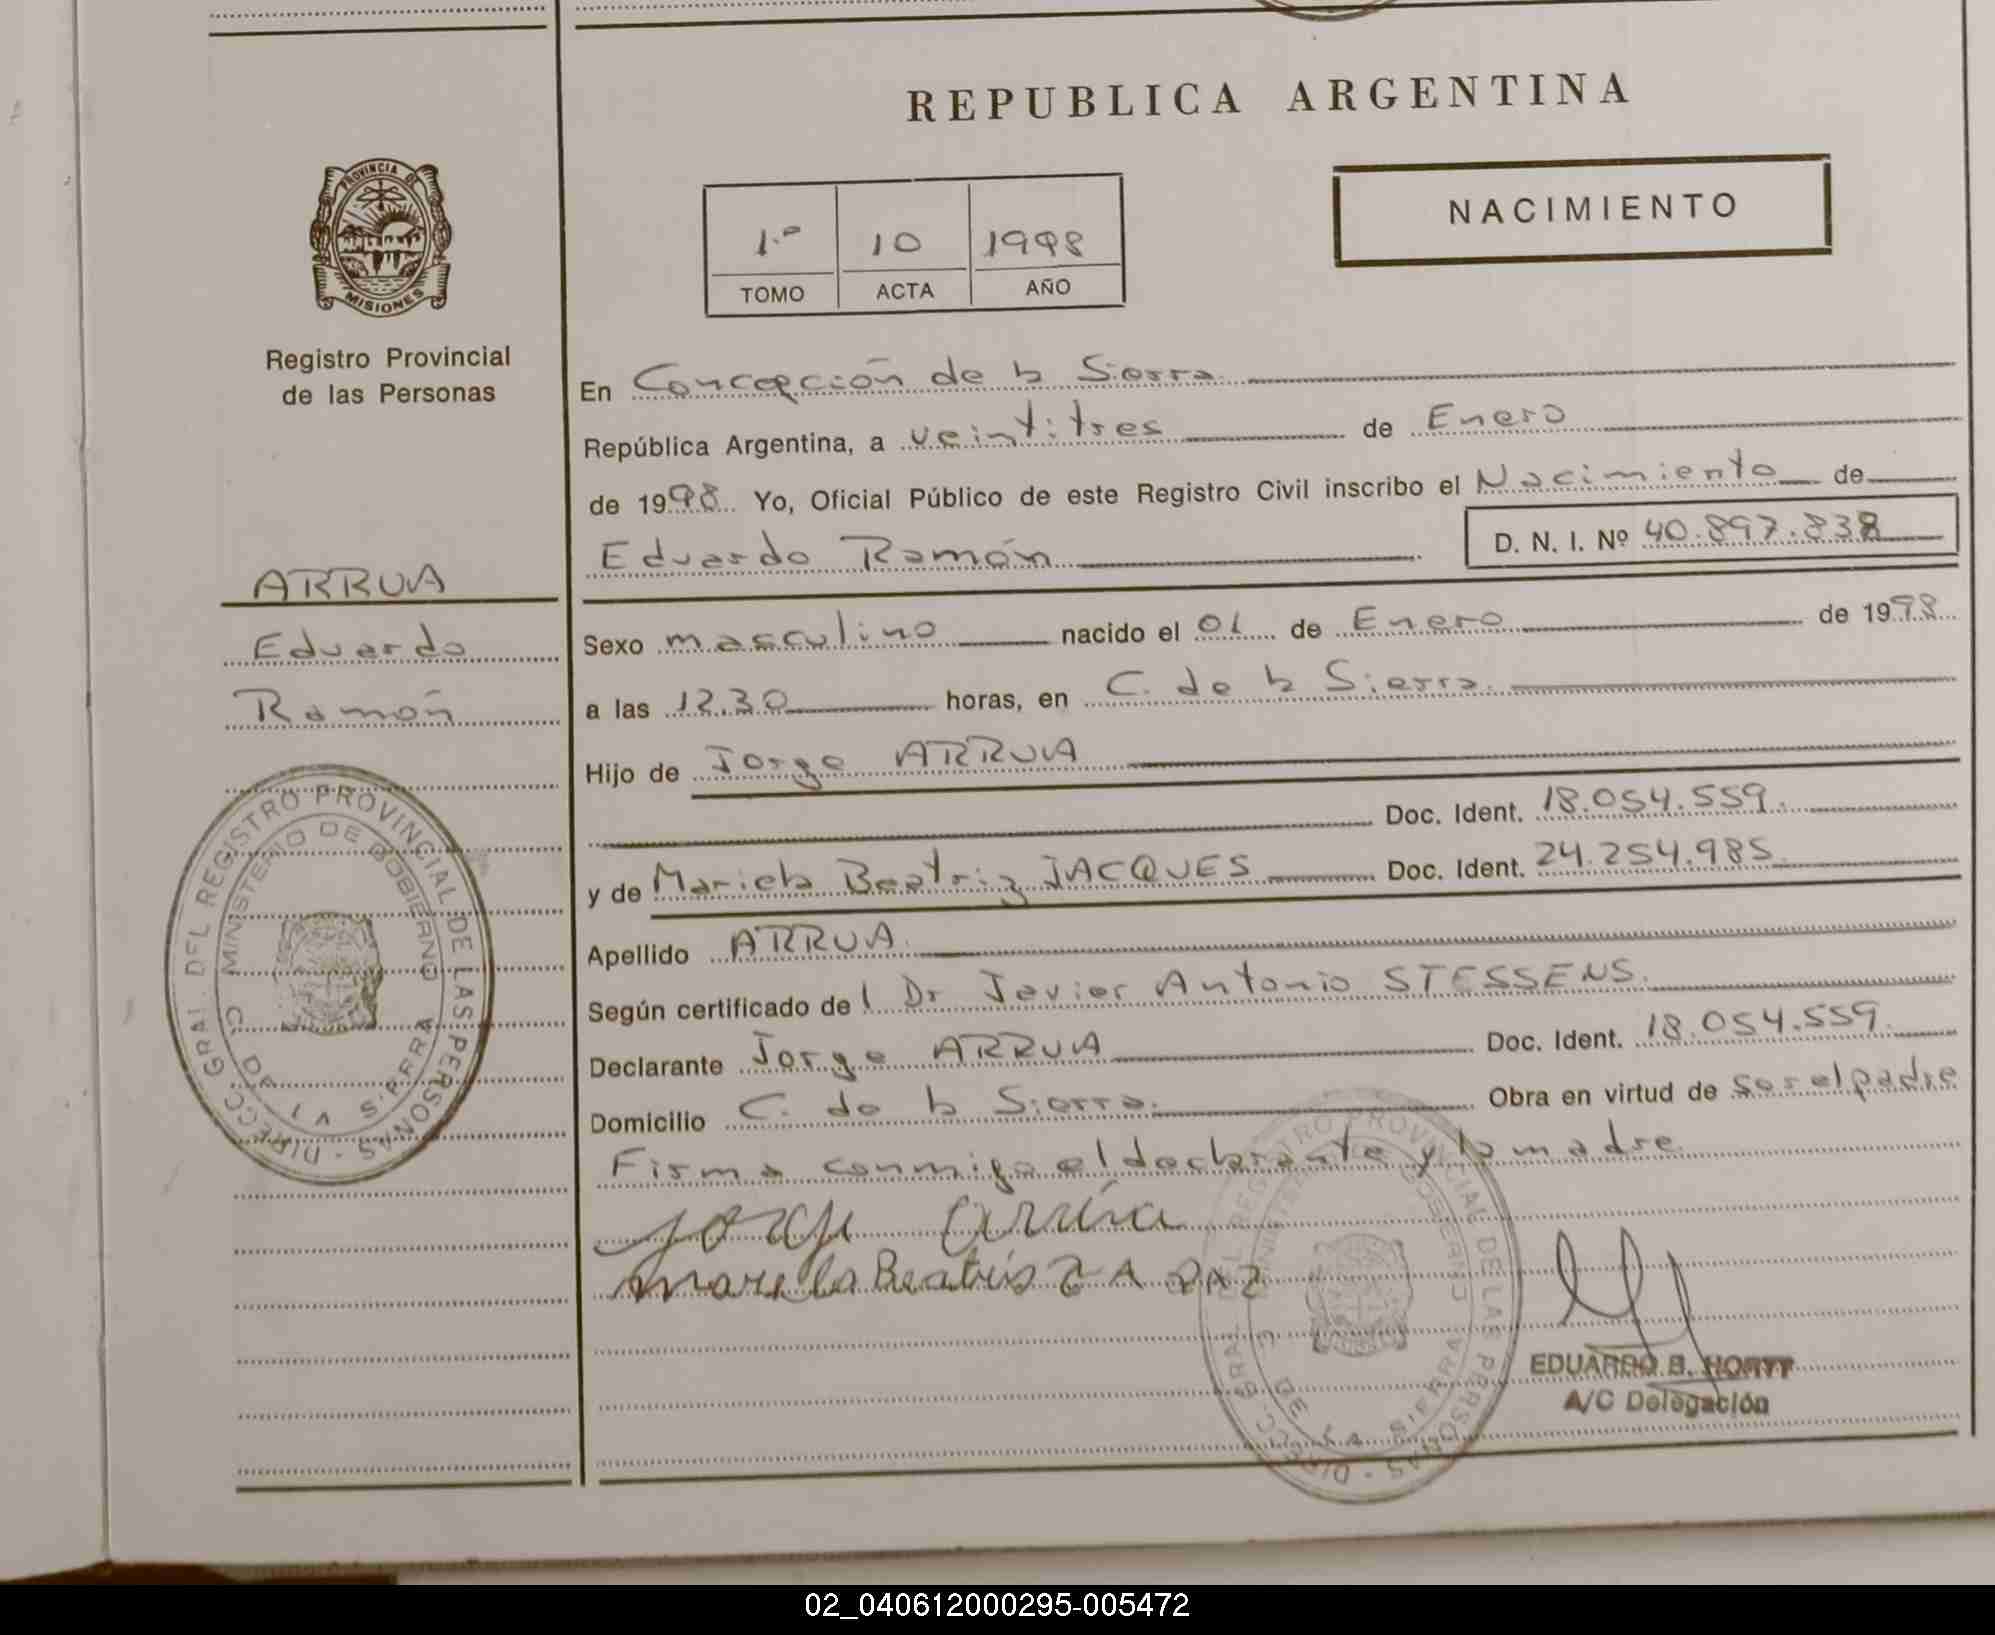 REPUBLICA ARGENTINA
PROVINCIA DE
MISIONES
Registro Provincial
de las Personas
1.º 10 1998
TOMO ACTA AÑO
NACIMIENTO
En Concepción de la Sierra
República Argentina, a veintitres de Enero
de 1998 Yo, Oficial Público de este Registro Civil inscribo el Nacimiento de
Eduardo Ramón
D. N. I. Nº 40.897.838
ARRUA
Eduardo
Ramón
Sexo masculino nacido el 01 de Enero de 1998
a las 12.30 horas, en C. de la Sierra
Hijo de Jorge ARRUA
Doc. Ident. 18.054.559
y de Mariela Beatriz JACQUES Doc. Ident. 24.254.985
Apellido ARRUA
Según certificado del Dr Javier Antonio STESSENS
Declarante Jorge ARRUA Doc. Ident. 18.054.559
Domicilio C. de la Sierra Obra en virtud de ser el padre
Firma conmigo el declarante y la madre
Jorge Arrúa
Mariela Beatris
DIRECC. GRAL. DEL REGISTRO PROVINCIAL DE LAS PERSONAS
MINISTERIO DE GOBIERNO
C. DE LA SIERRA
DIRECC. GRAL. DEL REGISTRO PROVINCIAL DE LAS PERSONAS
MINISTERIO DE GOBIERNO
C. DE LA SIERRA
EDUARDO B.
A/C Delegación
02_040612000295-005472